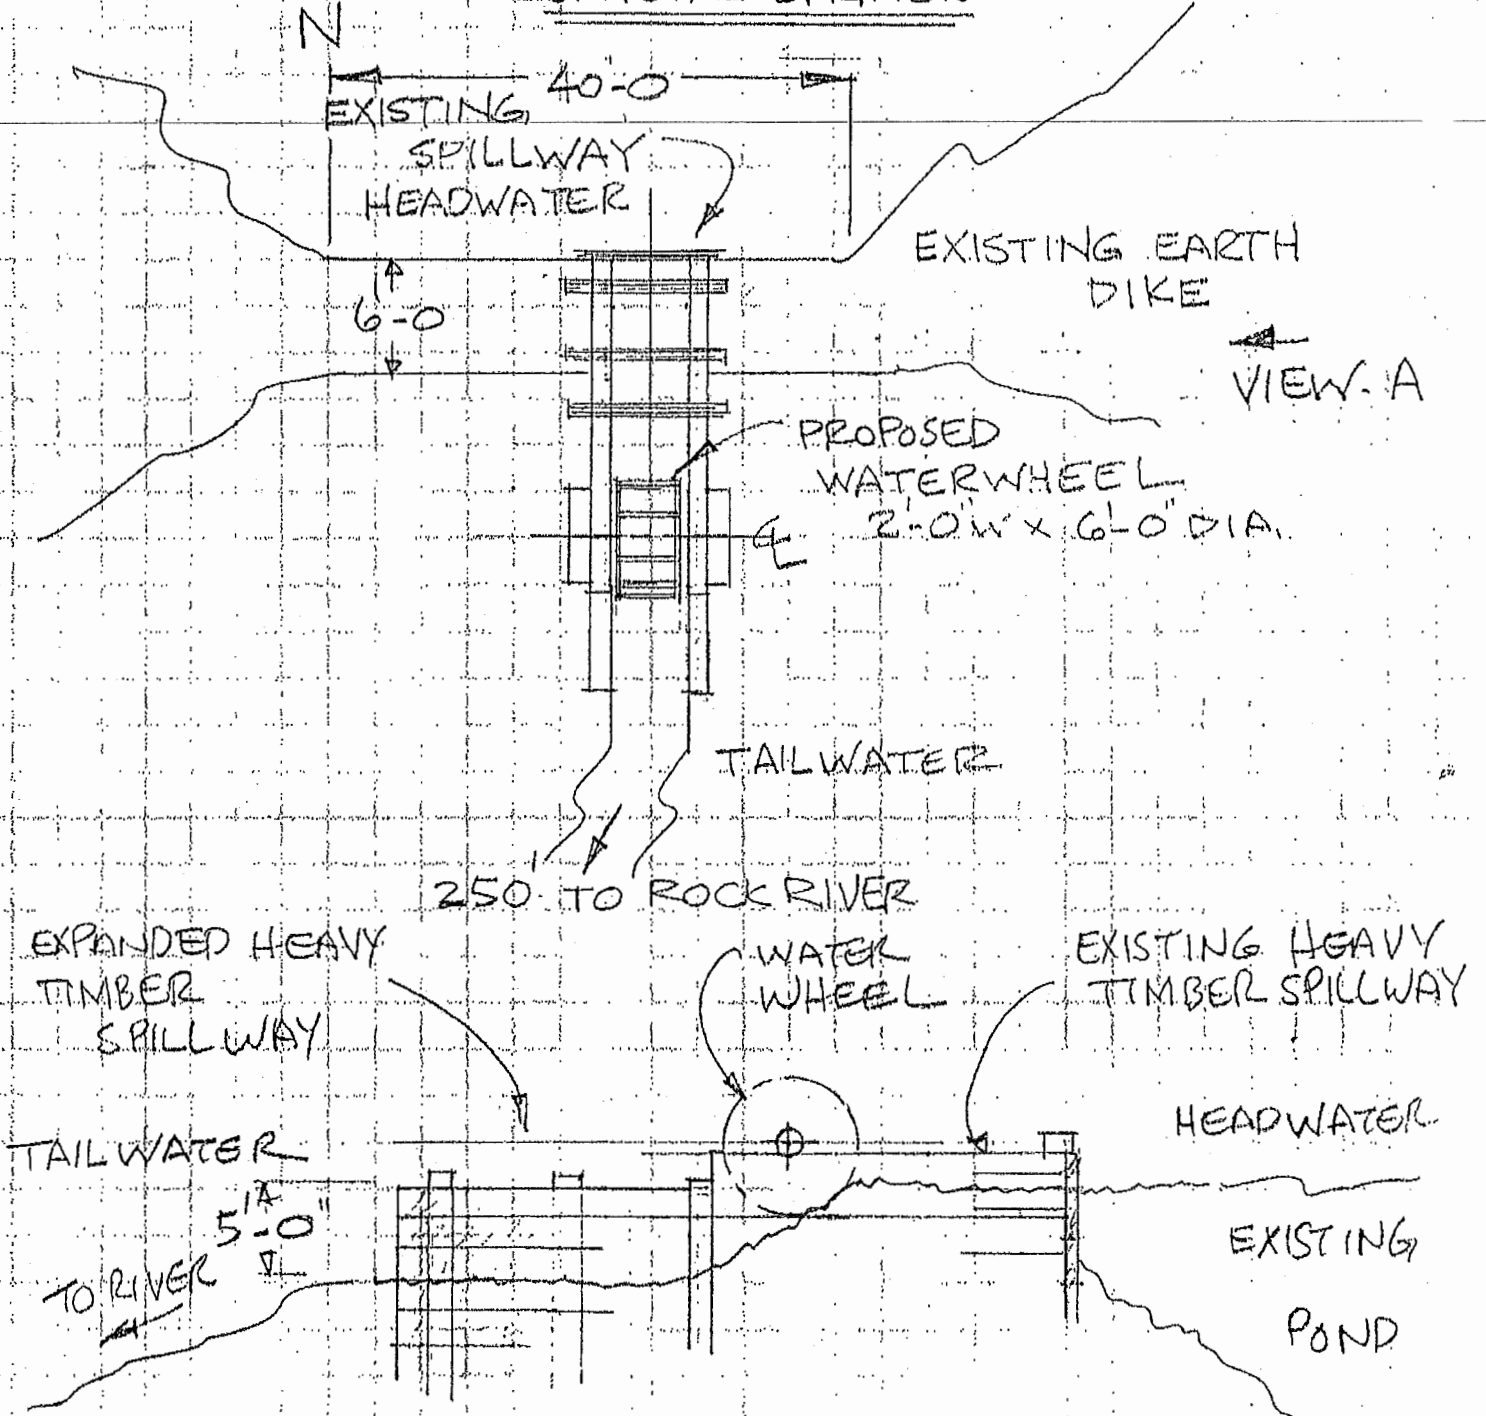 N
40'-0
EXISTING
SPILLWAY
HEADWATER
EXISTING EARTH
DIKE
6'-0
VIEW-A
PROPOSED
WATERWHEEL
2'-0"W x 6'-0" DIA.
℄
TAILWATER
250' TO ROCK RIVER
EXPANDED HEAVY
TIMBER
SPILLWAY
WATER
WHEEL
EXISTING HEAVY
TIMBER SPILLWAY
HEADWATER
TAILWATER
5'-0"
TO RIVER
EXISTING
POND